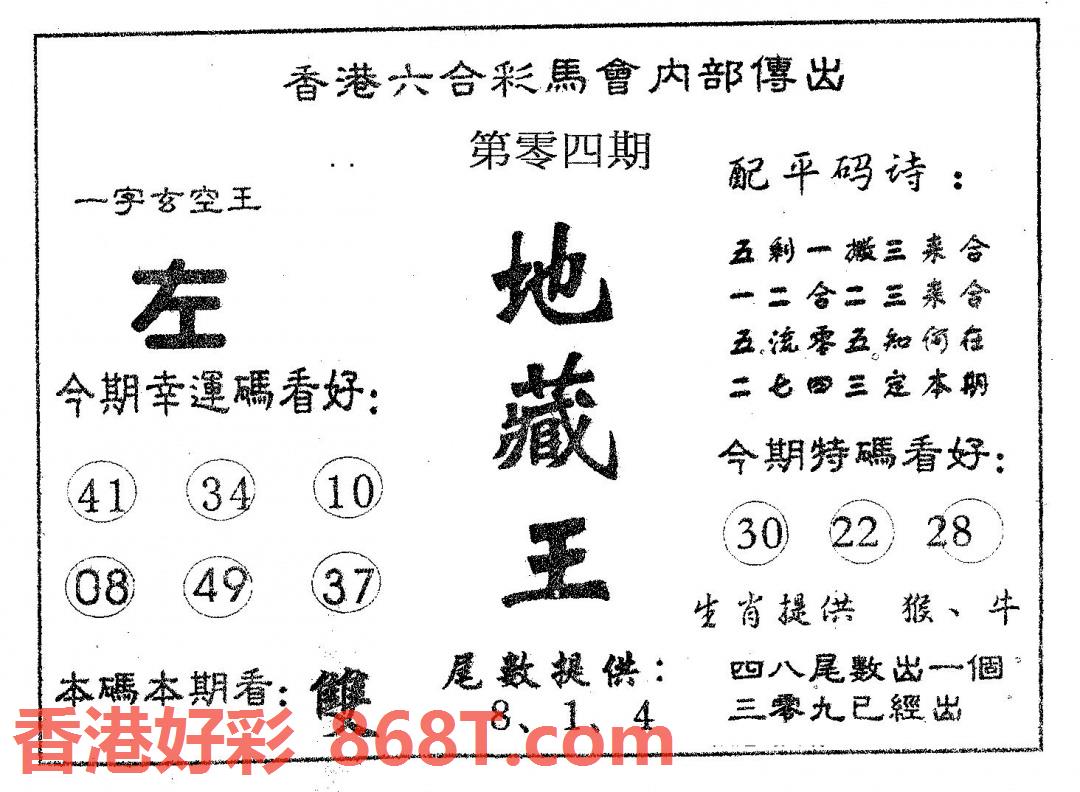 香港六合彩馬會内部傳出
第零四期
一字玄空王
左
今期幸運碼看好:
41 34 10
08 49 37
本碼本期看: 雙
地藏王
尾數提供:
8、1、4
配平码诗:
五剩一搬三来合
一二合二三来合
五流零五知何在
二七四三定本期
今期特碼看好:
30 22 28
生肖提供 猴、牛
四八尾數出一個
三零九已經出
香港好彩 868T.com